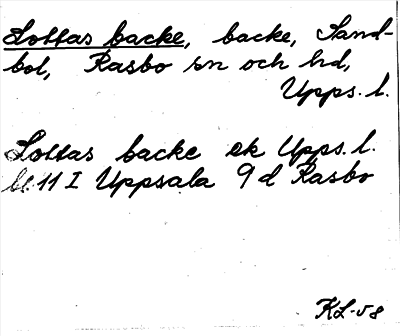 Lottas backe, backe, Sand-
bol, Rasbo sn och hd,
Upps. l.
Lottas backe ek Upps. l.
bl. 11 I Uppsala 9 d Rasbo
KL-58